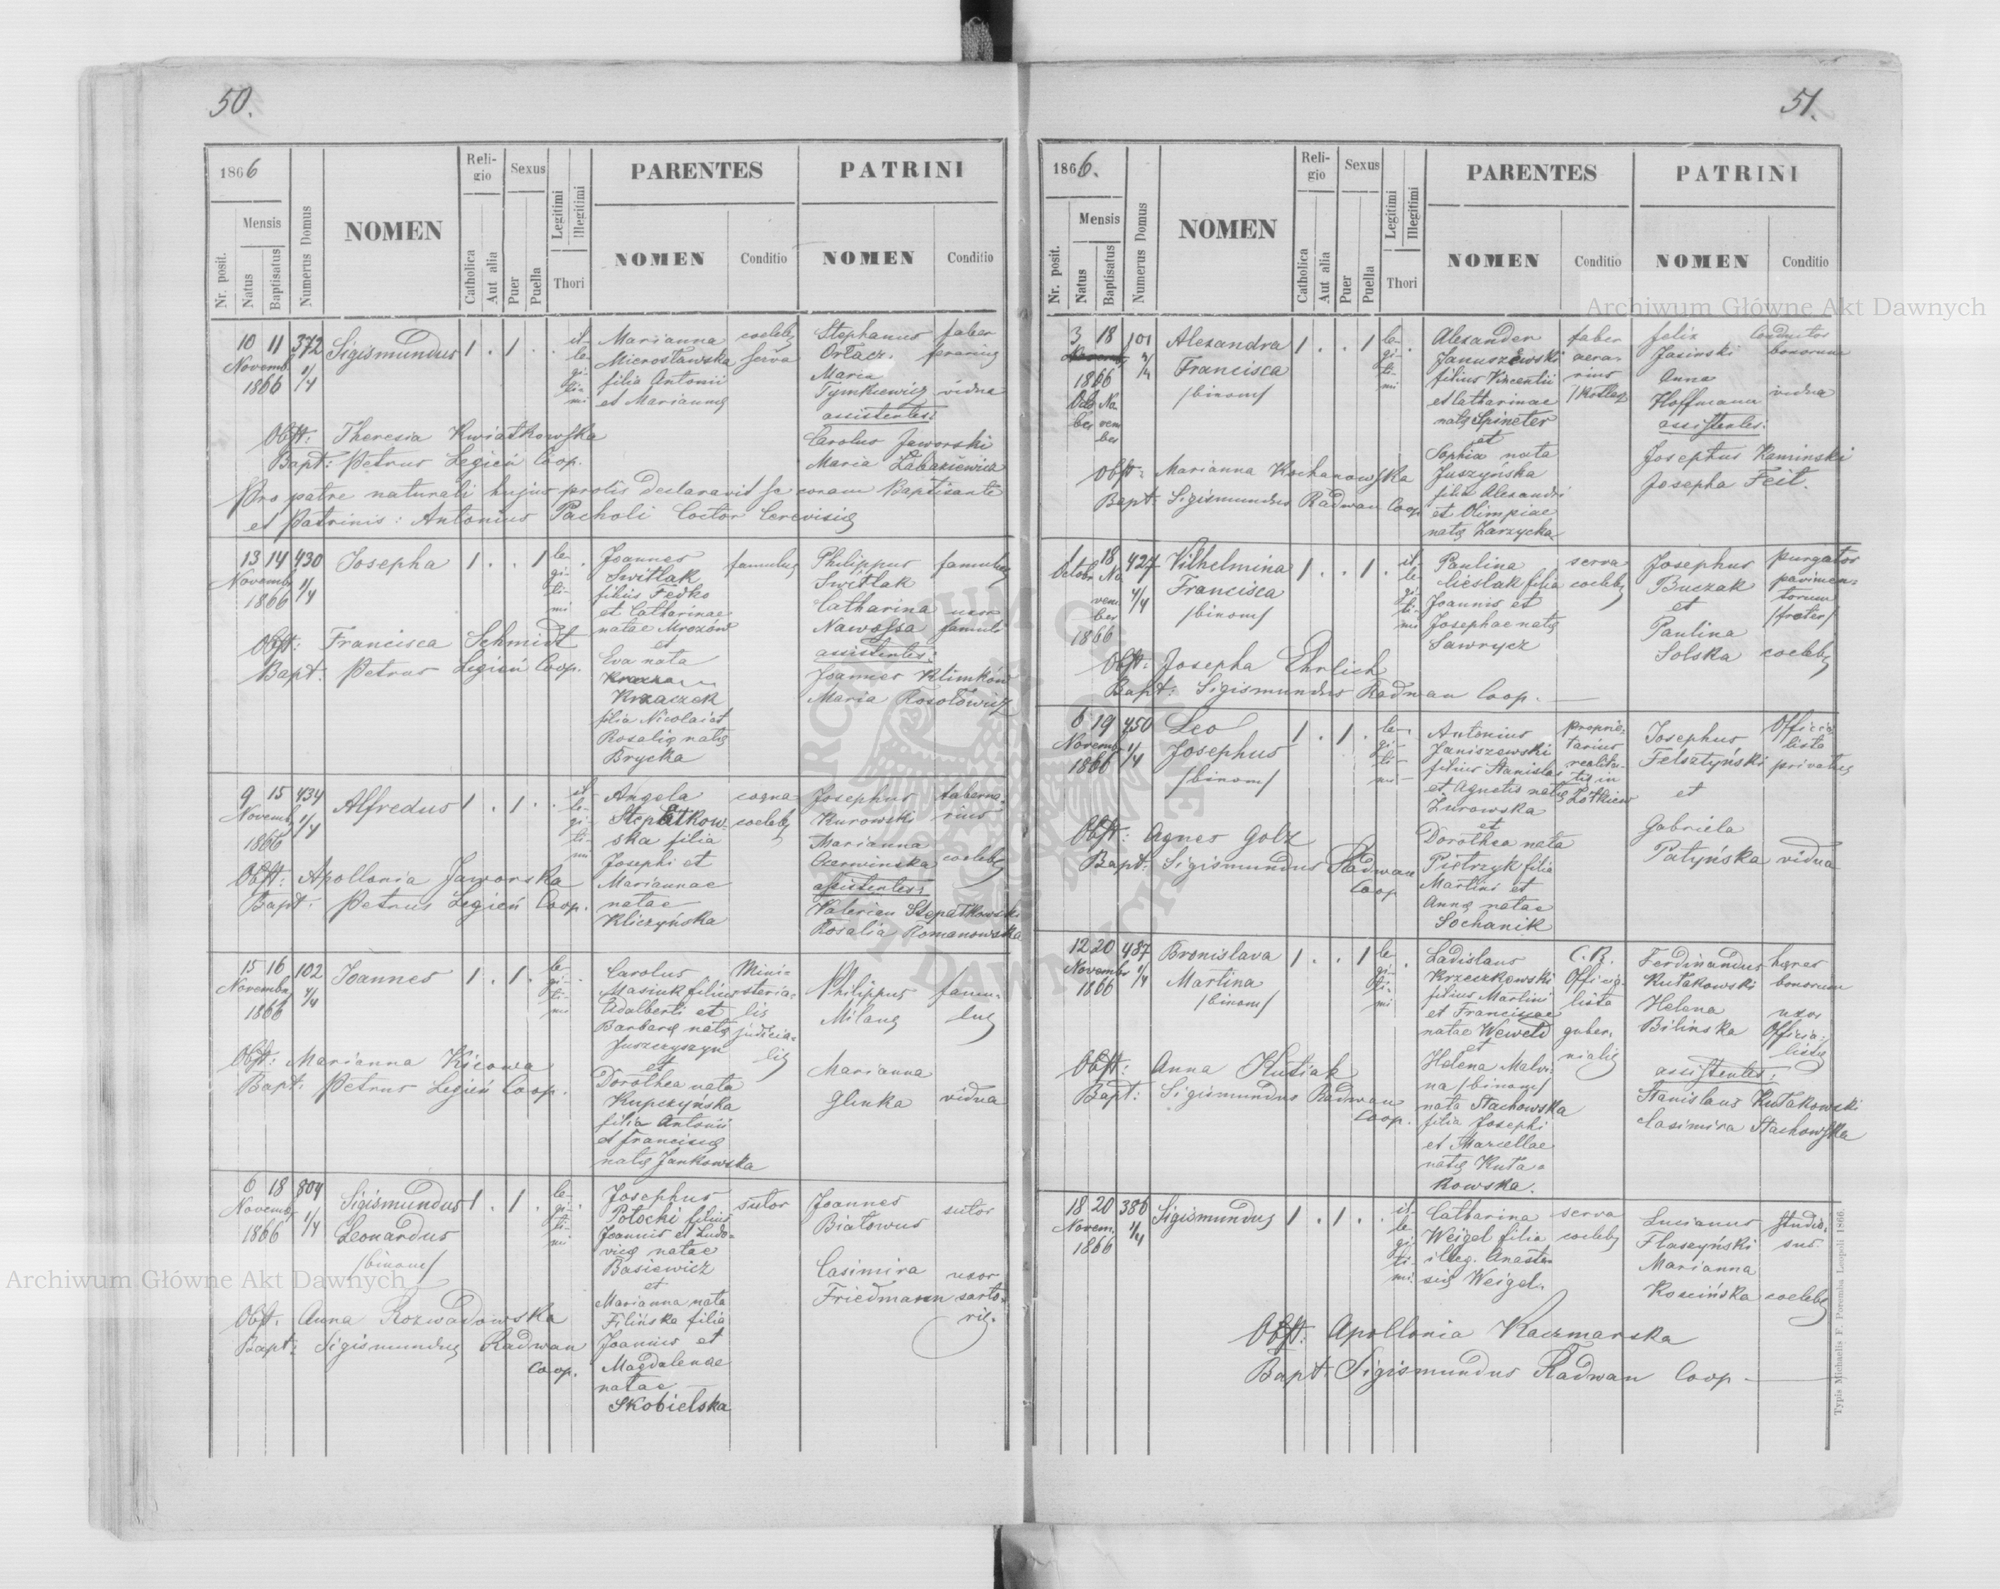 50.
1866
Mensis
Nr. posit.
Natus
Baptisatus
Numerus Domus
NOMEN
Reli-
gio
Catholica
Aut alia
Sexus
Puer
Puella
Legitimi
Illegitimi
Thori
PARENTES
NOMEN
Conditio
PATRINI
NOMEN
Conditio
10 11 372 Sigismundus 1 . 1 . .
Novemb. 1/4
1866
il-
le-
gi-
ti-
mi
Marianna
Mierosławska
filia Antonii
et Mariannę
coelebs
serva
Stephanus
Orłacz.
Maria
Tymkiewicz
assistentes:
Carolus Jaworski
Maria Łabaziewicz
faber
vidua
Obst: Theresia Kwiatkowska
Bapt: Petrus Legień Coop.
Pro patre naturali hujus prolis declaravit se coram Baptisante
et Patrinis: Antonius Pacholi Coctor Cerevisię
13 14 430 Josepha 1 . . 1
Novemb. 1/4
1866
le-
gi-
ti-
mi
Joannes
Switlak
filius Fedko
et Catharinae
natae Mrozów
et
Eva nata
Krzaczek
filia Nicolai et
Rosalię natę
Brycka
famulus
Philippus
Switlak
Catharina
Nawossa
assistentes:
Joannes Klimków
Maria Rosołowicz
famulus
uxor
famuli
Obst: Francisca Schmidt
Bapt: Petrus Legień Coop.
9 15 434 Alfredus 1 . 1 . .
Novemb. 1/4
1866
il-
le-
gi-
ti-
mi
Angela
Stepatkow-
ska filia
Josephi et
Mariannae
natae
Kliczyńska
coqua
coelebs
Josephus
Kurowski
Marianna
Czerwinska
assistentes:
Valerian Stepatkowski
Rosalia Romanowska
taberna-
rius
coelebs
Obst: Apollonia Jaworska
Bapt: Petrus Legień Coop.
15 16 102 Joannes 1 . 1 .
Novembr. 4/4
1866
le-
gi-
ti-
mi
Carolus
Masiuk filius
Adalberti et
Barbarę natę
Juszczyszyn
et
Dorothea nata
Kupczyńska
filia Antonii
et Franciscę
natę Jankowska
Mini-
steria-
lis
judicia-
lis
Philippus
Milang
Marianna
Glinka
famu-
lus
vidua
Obst: Marianna Kicowa
Bapt: Petrus Legień Coop.
6 18 804 Sigismundus 1 . 1 .
Novemb. 1/4 Leonardus
1866 /binom/
le-
gi-
ti-
mi
Josephus
Potocki filius
Joannis et Ludo-
vicę natae
Basiewicz
et
Marianna nata
Filińska filia
Joannis et
Magdalenae
natae
Skobielska
sutor
Joannes
Białowus
Casimira
Friedmann
sutor
uxor
sarto-
ris.
Obst. Anna Rozwadowska
Bapt: Sigismundus Radwan
Coop.
51.
1866.
Mensis
Nr. posit.
Natus
Baptisatus
Numerus Domus
NOMEN
Reli-
gio
Catholica
Aut alia
Sexus
Puer
Puella
Legitimi
Illegitimi
Thori
PARENTES
NOMEN
Conditio
PATRINI
NOMEN
Conditio
3 18 101 Alexandra 1 . . 1
2/4 Francisca
1866 /binom/
Octo No
ber vem
ber
le-
gi-
ti-
mi
Alexander
Januszewski
filius Vincentii
et Catharinae
natę Spineter
et
Sophia nata
Juszyńska
filia Alexandri
et Olimpiae
natę Zarzycka
faber
aera-
rius
Felix
Jasinski
Anna
Hoffmann
assistentes:
Josephus Kaminski
Josepha Feit.
Conductor
bonorum
vidua
Obst: Marianna Kochanowska
Bapt: Sigismundus Radwan Coop
1 18 427 Vilhelmina 1 . . 1 .
Octobr. No 4/4 Francisca
vem /binom/
ber
1866
il-
le-
gi-
ti-
mi
Paulina
Cieślak filia
Joannis et
Josephae natę
Sawrycz
serva
coelebs
Josephus
Buczak
et
Paulina
Solska
purgator
pavimen-
torum
/frater/
coelebs
Obst: Josepha Ehrlich
Bapt: Sigismundus Radwan Coop.
6 19 450 Leo 1 . 1 .
Novemb. 1/4 Josephus
1866 /binom/
le-
gi-
ti-
mi
Antonius
Janiszewski
filius Stanislai
et Agnetis natę
Żurowska
et
Dorothea nata
Pietrzyk filia
Martini et
Annę natae
Sochanik
proprie-
tarius
realita-
tis in
Żółkiew
Josephus
Felsztyński
et
Gabriela
Patyńska
Officia-
lista
privatus
vidua
Obst: Agnes Golz
Bapt: Sigismundus Radwan
Coop
12 20 487 Bronislava 1 . . 1
Novembr 1/4 Martina
1866 /binom/
le-
gi-
ti-
mi
Ladislaus
Krzeczkowski
filius Martini
et Franciscae
natae Weweld
et
Helena Malvi-
na /binom/
nata Stachowska
filia Josephi
et Marcellae
natę Kuta-
kowska.
C. R.
Officia-
lista
guber-
nialis
Ferdinandus
Kutakowski
Helena
Bilińska
assistentes:
Stanislaus Kutakowski
Casimira Stachowska
hęres
bonorum
uxor
Officia-
listę
Obst: Anna Kusiak
Bapt: Sigismundus Radwan
Coop.
18 20 386 Sigismundus 1 . 1 . .
Novem. 1/4
1866
il-
le-
gi-
ti-
mi.
Catharina
Weigel filia
illeg. Anasta-
się Weigel.
serva
coelebs
Lucianus
Flaszyński
Marianna
Kosińska
studio-
sus
coelebs
Obst: Apollonia Kaczmarska
Bapt: Sigismundus Radwan Coop
Typis Michaelis F. Poremba Leopoli 1866.
Archiwum Główne Akt Dawnych
Archiwum Główne Akt Dawnych